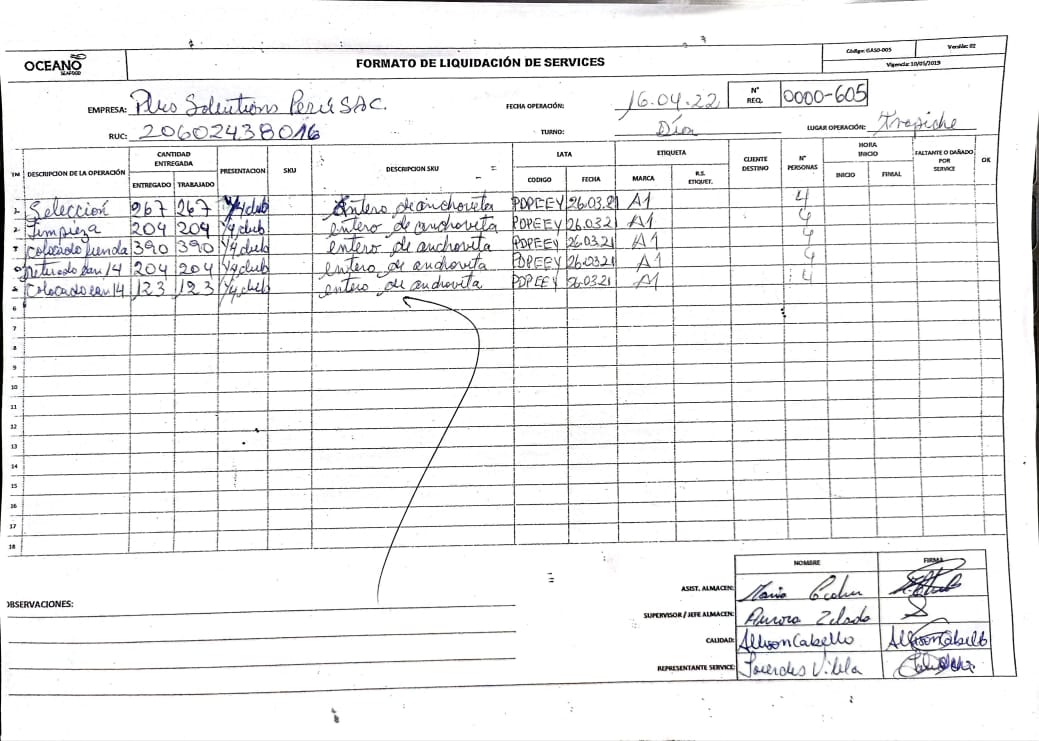 OCEANO
SEAFOOD
FORMATO DE LIQUIDACIÓN DE SERVICES
Código: GASO-005
Versión: 02
Vigencia: 10/05/2019
EMPRESA: Plus Solutions Perú SAC.
FECHA OPERACIÓN: 16.04.22
N° REQ. 0000-605
RUC: 20602438016
TURNO: Día
LUGAR OPERACIÓN: Trapiche
DESCRIPCION DE LA OPERACIÓN CANTIDAD ENTREGADA PRESENTACION SKU DESCRIPCION SKU LATA ETIQUETA CLIENTE DESTINO N° PERSONAS HORA INICIO FALTANTE O DAÑADO POR SERVICE OK
ENTREGADO TRABAJADO CODIGO FECHA MARCA R.S. ETIQUET. INICIO FINIAL
1 Selección 267 267 1/4 club entero de anchoveta PDPEEY 26.03.21 A1 4
2 Limpieza 204 204 1/4 club entero de anchoveta PDPEEY 26.03.21 A1 4
colocado funda 390 390 1/4 club entero de anchoveta PDPEEY 26.03.21 A1 4
can 14 204 204 1/4 club entero de anchoveta PDPEEY 26.03.21 A1 4
5 Colocado can 14 123 123 1/4 club entero de anchoveta PDPEEY 26.03.21 A1 4
6
7
8
9
10
11
12
13
14
15
16
17
18
NOMBRE FIRMA
ASIST. ALMACEN: Maria
OBSERVACIONES:
SUPERVISOR / JEFE ALMACEN: Aurora Zelada
CALIDAD: Allison Cabello Allison Cabello
REPRESENTANTE SERVICE: Lourdes Vilela